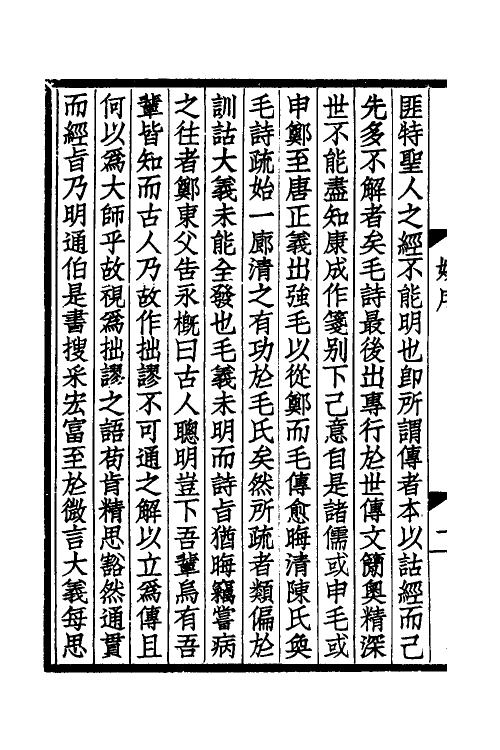 匪特聖人之經不能明也卽所謂傳者本以詁經而己
先多不解者矣毛詩最後出專行於世傳文簡奧精深
世不能盡知康成作箋别下己意自是諸儒或申毛或
申鄭至唐正義出強毛以從鄭而毛傳愈晦清陳氏奐
毛詩疏始一廓清之有功於毛氏矣然所疏者類偏於
訓詁大義未能全發也毛義未明而詩㫖猶晦竊嘗病
之往者鄭東父吿永概曰古人聰明豈下吾輩烏有吾
輩皆知而古人乃故作拙謬不可通之解以立爲傳且
何以爲大師乎故視爲拙謬之語苟肯精思豁然通貫
而經㫖乃明通伯是書搜采宏富至於微言大義每思
二